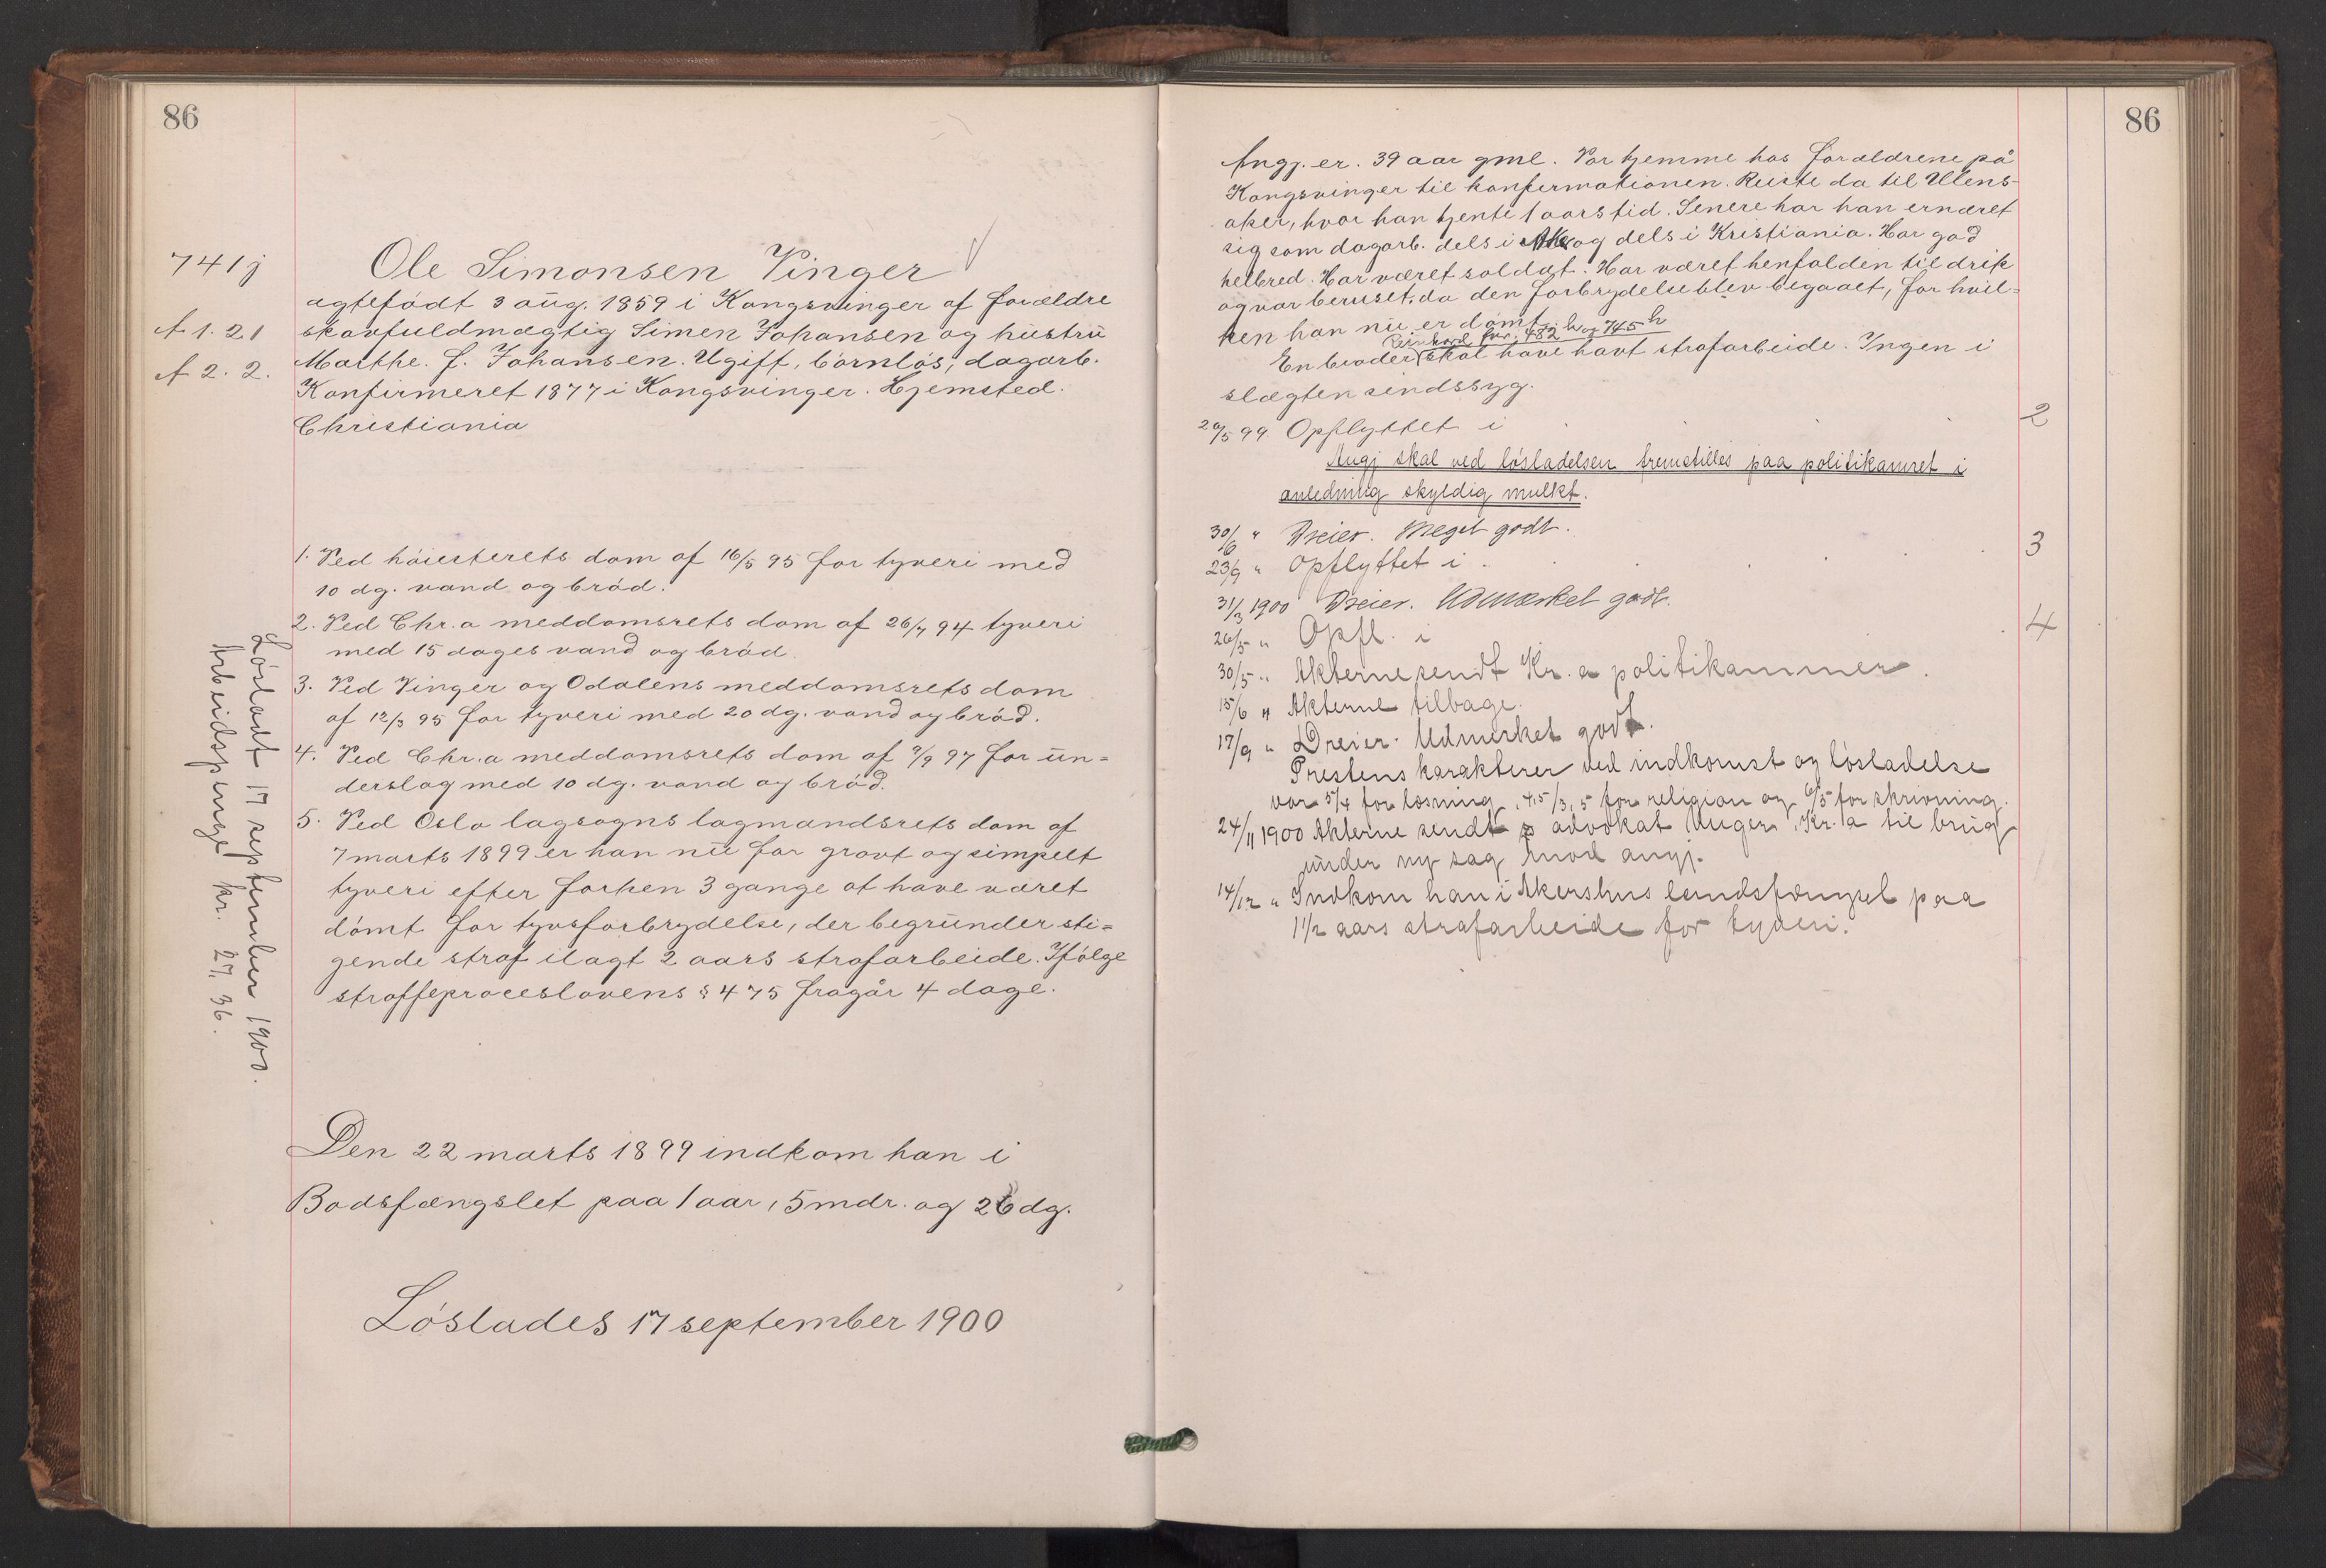 86
741j
Ole Simonsen Vinger
ægtefødt 3 aug. 1859 i Kongsvinger af forældre
A 1. 21
skovfuldmægtig Simen Johansen og hustru
A 2. 2.
Marthe f. Johansen. Ugift, børnløs, dagarb.
Konfirmeret 1877 i Kongsvinger. Hjemsted.
Christiania
1. Ved høiesterets dom af 16/5 95 for tyveri med
10 dg. vand og brød.
2. Ved Chr.a meddomsrets dom af 26/7 94 tyveri
med 15 dages vand og brød.
3. Ved Vinger og Odalens meddomsrets dom
af 12/3 95 for tyveri med 20 dg. vand og brød.
4. Ved Chr.a meddomsrets dom af 7/9 97 for un=
derslag med 10 dg. vand og brød.
5. Ved Oslo lagsogns lagmandsrets dom af
7 marts 1899 er han nu for grovt og simpelt
tyveri efter forhen 3 gange at have været
dømt for tyvsforbrydelse, der begrunder sti=
gende straf ilagt 2 aars strafarbeide. Ifølge
straffeproceslovens § 475 fragår 4 dage.
Løsladt 17 september 1900.
Arbeidspenge kr. 27,36.
Den 22 marts 1899 indkom han i
Bodsfængslet paa 1 aar, 5 mdr. og 26 dg.
Løslades 17 september 1900
86
Angj. er. 39 aar gml. Var hjemme hos forældrene på
Kongsvinger til konfirmationen. Reiste da til Ulens-
aker, hvor han tjente 1 aars tid. Senere har han ernæret
sig som dagarb. dels i og dels i Kristiania. Har god
helbred. Har været soldat. Har været henfalden til drik
og var beruset, da den forbrydelse blev begaaet, for hvil=
ken han nu er dømt.
Reinhard, fur. 482 h og 745 h
En broder skal have havt strafarbeide. Ingen i
slægten sindssyg.
20/5 99 Opflyttet i 2
Angj skal ved løsladelsen fremstilles paa politikamret i
anledning skyldig mulkt.
30/6 " Dreier. Meget godt.
23/9 " Opflyttet i 3
31/3 1900 Dreier. Udmærket godt.
26/5 " Opfl. i 4
30/5 " Akterne sendt Kr.a politikammer.
15/6 " Akterne tilbage.
17/9 " Dreier. Udmerket godt.
Prestens karakterer ved indkomst og løsladelse
var 5/4 for læsning, 4,5/3,5 for religion og 6/5 for skrivning.
24/11 1900 Akterne sendt advokat Unger, Kr.a til brug
under ny sag mod angj.
14/12 " Indkom han i Akershus landsfængsel paa
1 1/2 aars strafarbeide for tyveri.